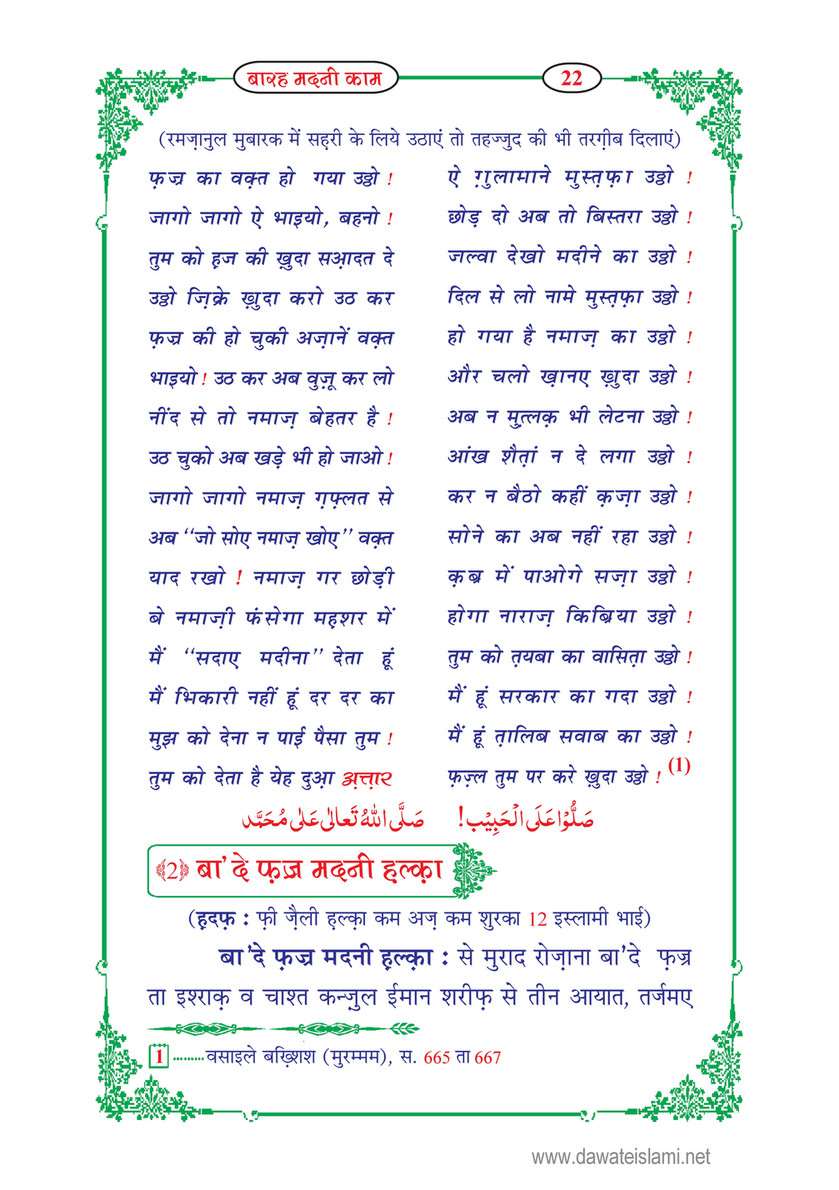 बारह मदनी काम 22
(रमज़ानुल मुबारक में सह़री के लिये उठाएं तो तहज्जुद की भी तरग़ीब दिलाएं)
फ़ज्र का वक़्त हो गया उठ्ठो ! ऐ ग़ुलामाने मुस्त़फ़ा उठ्ठो !
जागो जागो ऐ भाइयो, बहनो ! छोड़ दो अब तो बिस्तरा उठ्ठो !
तुम को ह़ज की ख़ुदा सआ़दत दे जल्वा देखो मदीने का उठ्ठो !
उठ्ठो ज़िक्रे ख़ुदा करो उठ कर दिल से लो नामे मुस्त़फ़ा उठ्ठो !
फ़ज्र की हो चुकी अज़ानें वक़्त हो गया है नमाज़ का उठ्ठो !
भाइयो ! उठ कर अब वुज़ू कर लो और चलो ख़ानए ख़ुदा उठ्ठो !
नींद से तो नमाज़ बेहतर है ! अब न मुत़्लक़ भी लेटना उठ्ठो !
उठ चुको अब खड़े भी हो जाओ ! आंख शैत़ां न दे लगा उठ्ठो !
जागो जागो नमाज़ ग़फ़्लत से कर न बैठो कहीं क़ज़ा उठ्ठो !
अब ‘‘जो सोए नमाज़ खोए’’ वक़्त सोने का अब नहीं रहा उठ्ठो !
याद रखो ! नमाज़ गर छोड़ी क़ब्र में पाओगे सज़ा उठ्ठो !
बे नमाज़ी फंसेगा मह़शर में होगा नाराज़ किब्रिया उठ्ठो !
मैं ‘‘सदाए मदीना’’ देता हूं तुम को त़यबा का वासित़ा उठ्ठो !
मैं भिकारी नहीं हूं दर दर का मैं हूं सरकार का गदा उठ्ठो !
मुझ को देना न पाई पैसा तुम ! मैं हूं त़ालिब सवाब का उठ्ठो !
तुम को देता है येह दुआ़ अ़त्त़ार फ़ज़्ल तुम पर करे ख़ुदा उठ्ठो ! (1)
صَلُّوْا عَلَى الْحَبِيْب! صَلَّى اللهُ تَعَالٰى عَلٰى مُحَمَّد
﴾2﴿ बा’दे फ़ज्र मदनी ह़ल्क़ा
(हदफ़ : फ़ी ज़ैली ह़ल्क़ा कम अज़ कम शुरका 12 इस्लामी भाई)
बा’दे फ़ज्र मदनी ह़ल्क़ा : से मुराद रोज़ाना बा’दे फ़ज्र
ता इश्राक़ व चाश्त कन्ज़ुल ईमान शरीफ़ से तीन आयात, तर्जमए
1 .........वसाइले बख़्शिश (मुरम्मम), स. 665 ता 667
www.dawateislami.net